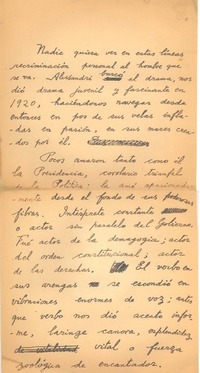 Nadie quiera ver en estas líneas
recriminación personal al hombre que
se va. Alessandri buscó al drama, nos
dió drama juvenil y fascinante en
1920, haciéndonos navegar desde
entonces en pos de sus velas infla-
das en pasión, en sus mares crea-
dos por él.
Pocos amaron tanto como él
la Presidencia, corolario triunfal
de la Política: la amó apasionada-
mente desde el fondo de sus poderosas
fibras. Intérprete constante
o actor sin paralelo del Gobierno.
Fué actor de la demagogia; actor
del orden constitucional; actor
de las derechas. El verbo en
sus arengas se escondió en
vibraciones enormes de voz; antes
que verbo nos dió acento infor-
me, laringe canora, esplendidez
vital o fuerza
zoológica de encantador.